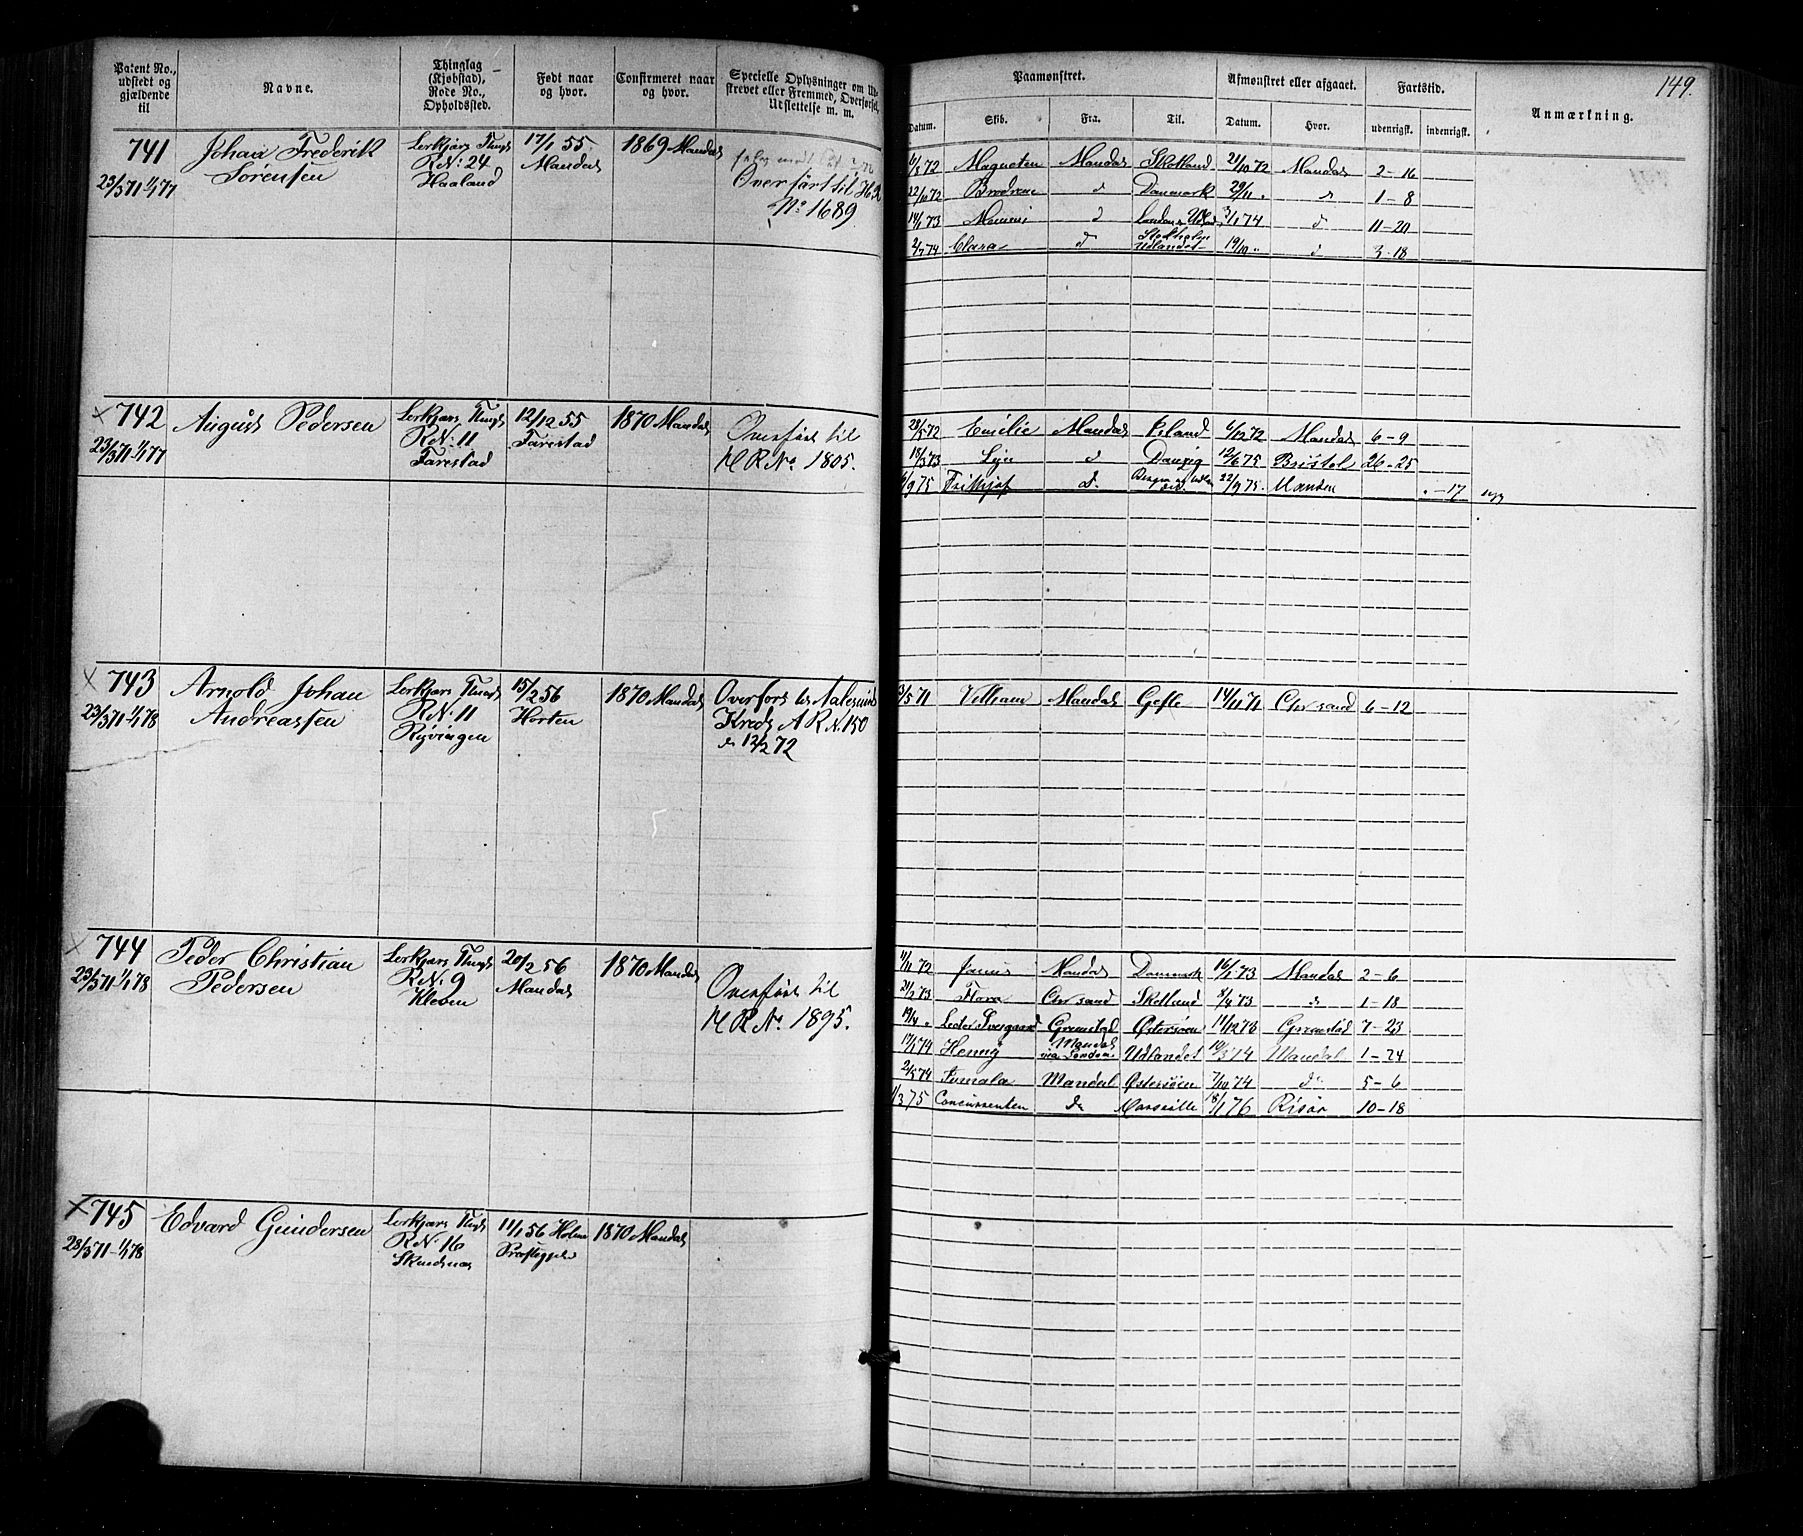 149.
Patent No., udstedt og gjældende til
Navne.
Thinglag (Kjøbstad), Rode No., Opholdssted.
Født naar og hvor.
Confirmeret naar og hvor.
Specielle Oplysninger om Udskrevet eller Fremmed, Overførsel, Udslettelse m. m.
Paamønstret.
Afmønstret eller afgaaet.
Fartstid.
Anmærkning.
Datum. Skib. Fra. Til. Datum. Hvor. udenrigsk. indenrigsk.
741
23/3 71 1/1 77
Johan Frederik
Sørensen
R N: 24
Haaland
17/1 55
Mandal
1869 Mandal
Overført til H R
No 1689
6/5 72 Magneten Mandal Skotland 21/10 72 Mandal 2-16
22/10 72 Brødrene d Danmark 29/11 " d 1-8
d 3/1 74 d 11-20
Stockholm
2/7 74 Clara d Udlandet 19/10 " d 3-18
x 742
23/3 71 1/1 77
August Pedersen
R N: 11
Farestad
12/12 55
Farestad
1870 Mandal
Overført til
H R No 1805.
28/5 72 Emilie Mandal Island 6/12 72 Mandal 6-9
18/3 73 d Danzig 12/6 75 Bristol 26-25
9 75 Frithjof d. 22/9 75. Mandal "-17
x 743
23/3 71 1/1 78
Arnold Johan
Andreassen
R N: 11
Ryvingen
15/2 56
Horten
1870 Mandal
Overført til Aalesunds
Kreds A R N. 150
d. 12/2 72
3/5 71 Mandal Gefle 14/11 71 Chr sand 6-12
x 744
23/3 71 1/1 78
Peder Christian
Pedersen
R N: 9
Kleven
20/2 56
Mandal
1870 Mandal
Overført til
H R No 1895.
11/11 72 Mandal Danmark 16/1 73 Mandal 2-6
21/2 73 Flora Chr sand Skotland 8/4 73 d 1-18
19/4 " Grimstad Østersøen 11/12 73 Grimstad 7-23
Udlandet 10/3 74 Mandal 1-24
2/5 74 Mandal Østersøen 7/10 74 do 5-6
1/3 75 Concurrenten do Marseille 18/1 76 Risør 10-18
x 745
28/3 71 1/1 78
Edvard Gundersen
R N: 16
11/1 56 Holme
Præstegjeld
1870 Mandal